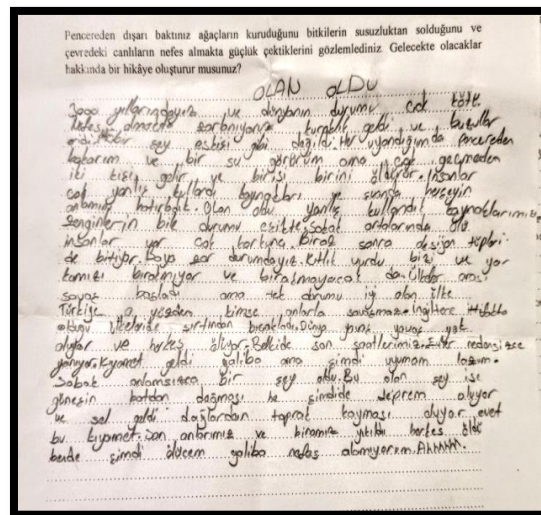 Pencereden dışarı baktınız ağaçların kuruduğunu bitkilerin susuzluktan solduğunu ve
çevredeki canlıların nefes almakta güçlük çektiklerini gözlemlediniz Gelecekte olacaklar
hakkında bir hikâye oluşturur musunuz?
OLAN OLDU
3000 yıllarındayız ve dünyanın durumu çok kötü.
Nefes almakta zorlanıyoruz kuraklık geldi ve buzullar
eridi. Hiçbir şey eskisi gibi değildi. Her uyandığımda pencereden
bakarım ve bir su görürüm ama çok geçmeden
iki kişi gelir ve birisi birini öldürür. İnsanlar
çok yanlış kullandı kaynakları ve herşeyin
anlamını Olan oldu yanlış kullandık kaynaklarımızı
Zenginlerin bile durumu Sokak ortalarında ölü
insanlar var çok korkunç. Biraz sonra tüpleri
de bitiyor. zor durumdayız. Kıtlık vurdu bizi ve
bırakmıyor ve bırakmayacak da. Ülkeler arası
savaş başladı ama tek durumu iyi olan ülke
Türkiye o yüzden kimse onlarla savaşmaz. İngiltere
olduğu ülkeleride sırtından bıçakladı. Dünya yavaş yok
oluyor ve herkes ölüyor. Belkide son saatlerimiz. Evler
yanıyor. Kıyamet geldi galiba ama şimdi uyumam lazım.
Sabah bir şey oldu. Bu olan şey ise
güneşin batıdan doğması he şimdide deprem oluyor
ve sel geldi dağlardan toprak kayması oluyor evet
bu kıyamet. Son anlarımız ve binamız yıkıldı herkes öldü
bende şimdi ölücem galiba nefes alamıyorum.